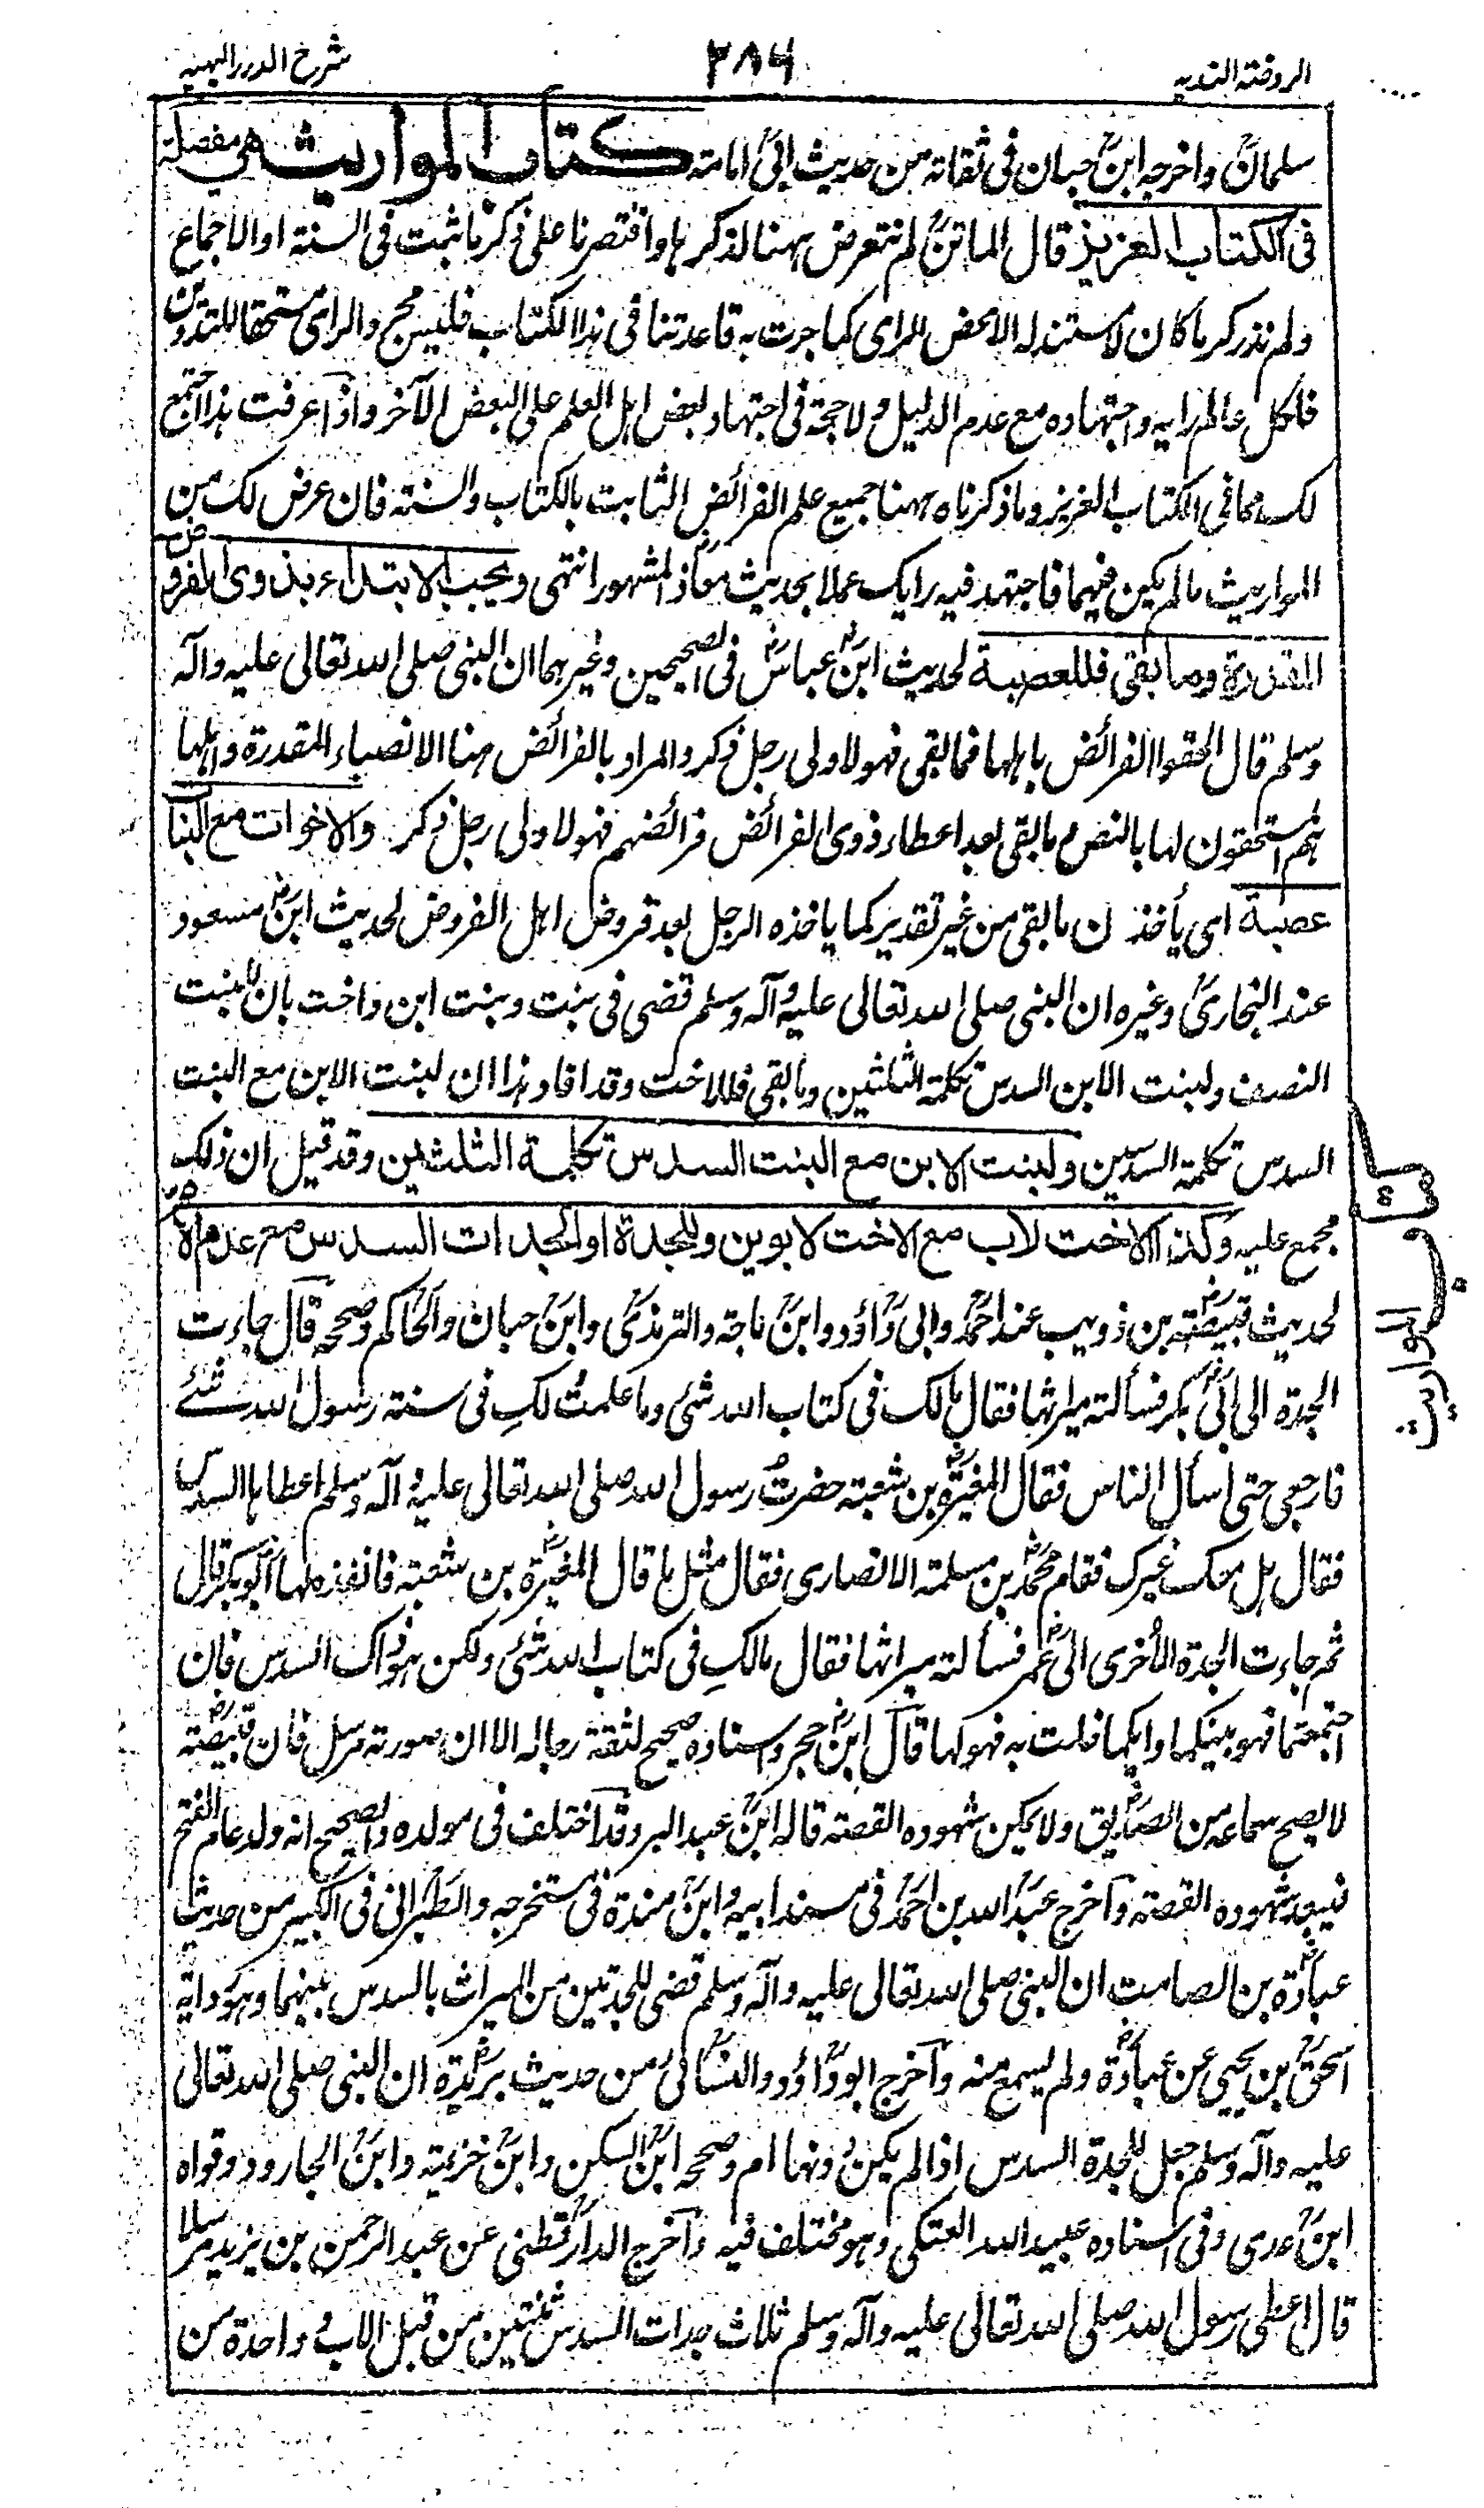 الروضة الندية
٣٨٦
شرح الدرر البهية
سلمان واخرجه ابن حبان فى ثقاته من حديث ابى امامة كتاب المواريث هى مفصلة
فى الكتاب العزيز قال الماتن لم نتعرض ههنا لذكرها واقتصرنا على ذكر ما ثبت فى السنة او الاجماع
ولم نذكر ما كان لا مستند له الا محض الراى كما جرت به قاعدتنا فى هذا الكتاب فليس مجرد الراى مستحقا للتدوين
فلكل عالم رايه واجتهاده مع عدم الدليل ولا حجة فى اجتهاد بعض اهل العلم على البعض الآخر واذا عرفت هذا اجتمع
لك مما فى الكتاب العزيز وما ذكرناه ههنا جميع علم الفرائض الثابت بالكتاب والسنة فان عرض لك من
المواريث ما لم يكن فيهما فاجتهد فيه رايك عملا بحديث معاذ المشهور انتهى ويجب الابتداء بذوى الفروض
المقدرة وما بقى فللعصبة لحديث ابن عباس فى الصحيحين وغيرهما ان النبى صلى الله تعالى عليه وآله
وسلم قال الحقوا الفرائض باهلها فما بقى فهو لاولى رجل ذكر والمراد بالفرائض هنا الانصباء المقدرة واهلها
هم المستحقون لها بالنص وما بقى بعد اعطاء ذوى الفرائض فرائضهم فهو لاولى رجل ذكر والاخوات مع البنات
عصبة اى يأخذن ما بقى من غير تقدير كما ياخذه الرجل بعد فروض اهل الفروض لحديث ابن مسعود
عند البخارى وغيره ان النبى صلى الله تعالى عليه وآله وسلم قضى فى بنت وبنت ابن واخت بان للبنت
النصف ولبنت الابن السدس تكملة الثلثين وما بقى فللاخت وقد افاد هذا ان لبنت الابن مع البنت
السدس تكملة السدسين ولبنت الابن مع البنت السدس تكملة الثلثين وقد قيل ان ذلك
مجمع عليه وكذا الاخت لاب مع الاخت لابوين وللجدة او الجدات السدس مع عدم الام
لحديث قبيصة بن ذويب عند احمد وابى داؤد وابن ماجة والترمذى وابن حبان والحاكم وصححه قال جاءت
الجدة الى ابى بكر فسألته ميراثها فقال مالك فى كتاب الله شئ وما علمت لك فى سنة رسول الله شئ
فارجعى حتى اسأل الناس فقال المغيرة بن شعبة حضرت رسول الله صلى الله تعالى عليه وآله وسلم اعطاها السدس
فقال هل معك غيرك فقام محمد بن مسلمة الانصارى فقال مثل ما قال المغيرة بن شعبة فانفذه لها ابو بكر قال
ثم جاءت الجدة الأخرى الى عمر فسألته ميراثها فقال مالك فى كتاب الله شئ ولكن هو ذاك السدس فان
اجتمعتما فهو بينكما وايكما خلت به فهو لها قال ابن حجر واسناده صحيح لثقة رجاله الا ان صورته مرسل فان قبيصة
لا يصح سماعه من الصديق ولا يمكن شهوده القصة قاله ابن عبد البر وقد اختلف فى مولده والصحيح انه ولد عام الفتح
فيبعد شهوده القصة وآخرج عبد الله بن احمد فى مسند ابيه وابن مندة فى مستخرجه والطبرانى فى الكبير من حديث
عبادة بن الصامت ان النبى صلى الله تعالى عليه وآله وسلم قضى للجدتين من الميراث بالسدس بينهما وهو من رواية
اسحق بن يحيى عن عبادة ولم يسمع منه وآخرج ابو داؤد والنسائى من حديث بريدة ان النبى صلى الله تعالى
عليه وآله وسلم جعل للجدة السدس اذا لم يكن دونها ام وصححه ابن السكن وابن خزيمة وابن الجارود وقواه
ابن عدى وفى اسناده عبيد الله العتكى وهو مختلف فيه وآخرج الدارقطنى عن عبد الرحمن بن يزيد مرسلا
قال اعطى رسول الله صلى الله تعالى عليه وآله وسلم ثلاث جدات السدس ثنتين من قبل الاب وواحدة من
المواريث